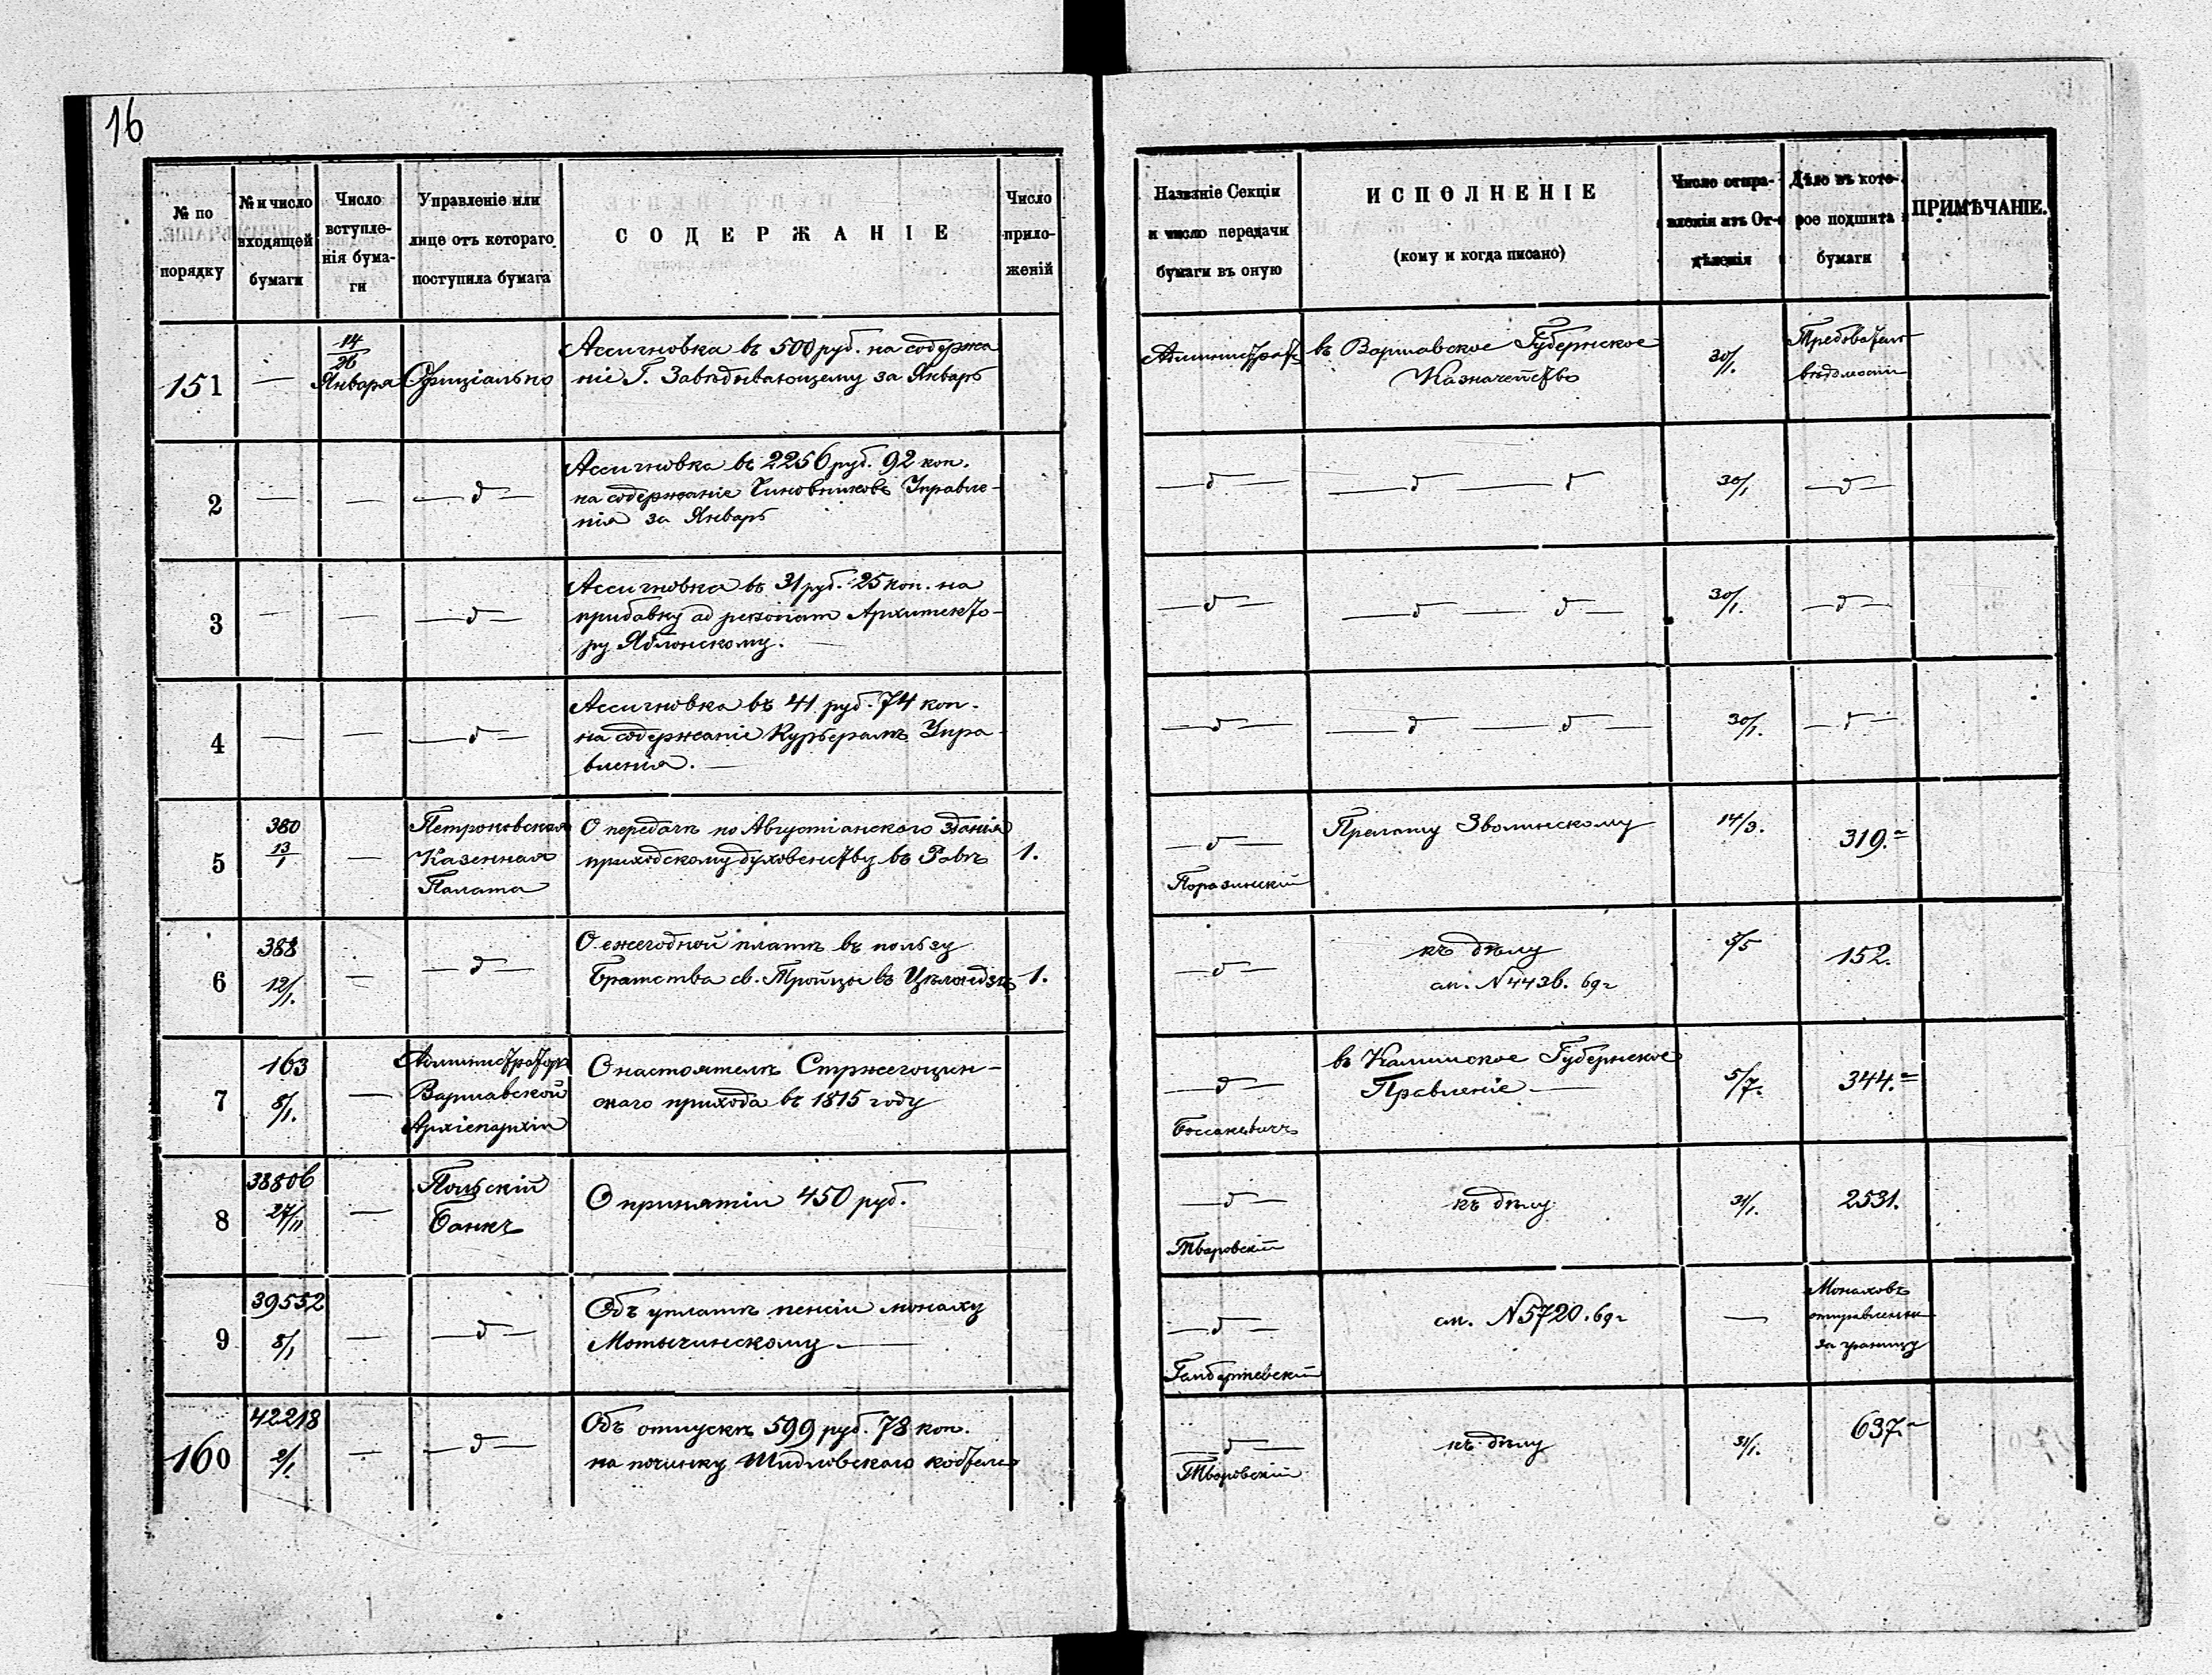 16
№ по порядку
№ и число входящей бумаги
Число вступленія бумаги
Управленіе или лице отъ котораго поступила бумага
СОДЕРЖАНІЕ
Число приложеній
Названіе Секціи и число передачи бумаги въ оную
ИСПОЛНЕНІЕ
(кому и когда писано)
Число отправленія изъ Отдѣленія
Дѣло въ которое подшита бумаги
ПРИМѢЧАНІЕ.
151
—
14/26
Января
Офиціально
Ассигновка въ 500 руб. на содержа
ніе Г. Завѣдывающему за Январь
въ Варшавское Губернское
Казначейство
30/1.
Требователь
вѣдомости
2
— — —д—
Ассигновка въ 2256 руб. 92 коп.
на содержаніе Чиновниковъ Управле-
нія за Январь
—д— —д— д
30/1
—д—
3
— — —д—
Ассигновка въ 31 руб. 25 коп. на
прибавку ad personam Архитекто-
ру Яблонскому.
—д— —д— —д—
30/1.
—д—
4
— — —д—
Ассигновка въ 41 руб. 74 коп.
на содержаніе Курьерамъ Упра
вленія. —
—д— —д— —д—
30/1.
—д—
5
380
13/1
—
Петроковская
Казенная
Палата
О передачѣ по Августіанскаго зданія
приходскому духовенству въ Равѣ
1.
—д—
Поразинскій
Прелату Зволинскому
14/3.
319.
6
388
12/1.
—
—д—
О ежегодной платѣ въ пользу
Братства св. Тройцы въ
1.
—д—
къ дѣлу
см. N 4436. 69 г
5/5
152.
7
163
8/1.
—
Администраторъ
Варшавской
Архіепархіи
О настоятелѣ Стржегоцин-
скаго прихода въ 1815 году
—д—
въ Калишское Губернское
Правленіе —
5/7.
344.
8
38806
27/11
—
Польскій
Банкъ
О принятіи 450 руб.
—д—
Тваровскій
къ дѣлу
31/1.
2531.
9
39552
8/1
—
—д—
Объ уплатѣ пенсіи монаху
Мотычинскому —
—д—
см. N 5720. 69 г
—
Монаховъ
отправленн
за границу
160
42218
2/1
—
—д—
Объ отпускѣ 599 руб. 78 коп.
на починку Шидловскаго костела
—д—
Тваровскій
къ дѣлу
31/1.
637.